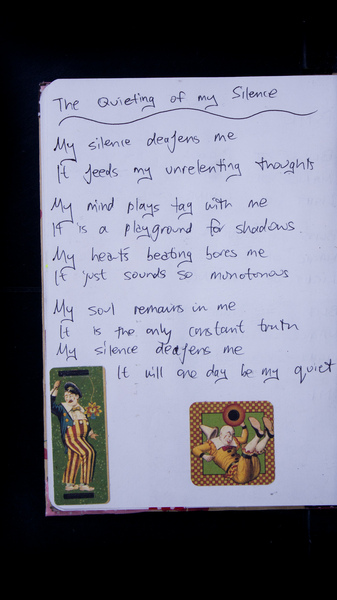 The Quieting of my Silence
My silence deafens me
It feeds my unrelenting thoughts
My mind plays tag with me
It is a playground for shadows.
My hearts beating bores me
It just sounds so monotonous
My soul remains in me
It is the only constant truth
My silence deafens me
It will one day be my quiet